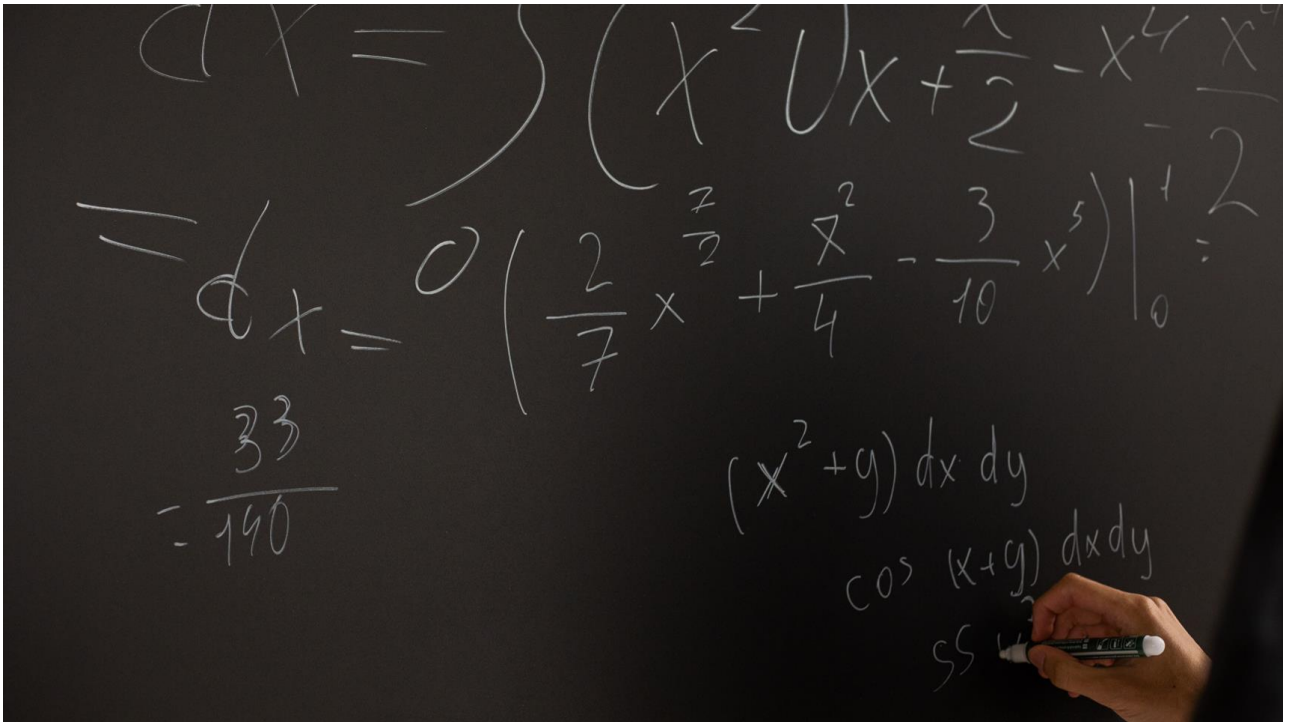 dx = ∫(x² √x + x/2 - x⁴ - x⁴/2
= dx = 0 (2/7 x^7/2 + x²/4 - 3/10 x⁵)|₀¹ =
= 33/140
(x² + y) dx dy
cos (x+y) dx dy
SS